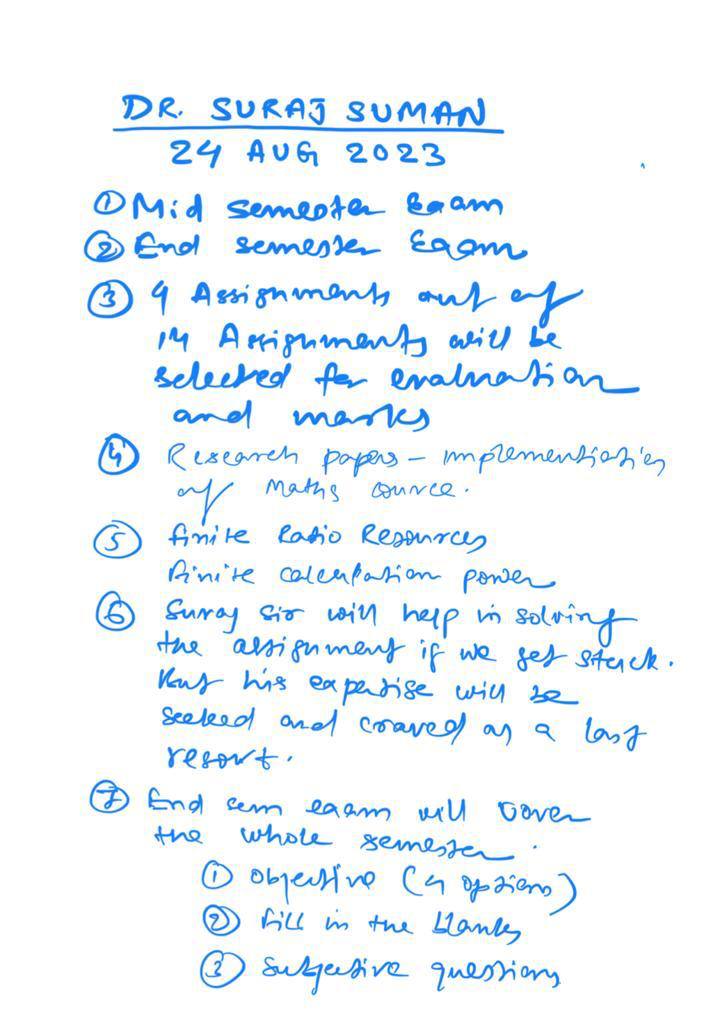 DR. SURAJ SUMAN
24 AUG 2023
① Mid semester Exam
② End semester Exam
③ 4 Assignments out of
14 Assignments will be
selected for evaluation
and marks
④ Research papers - implementiation
of Maths cource.
⑤ finite Ratio Resources
finite calculation power
⑥ Suraj sir will help in solving
the assignment if we get stuck.
But his expertise will be
seeked and craved as a last
resort.
⑦ End sem exam will cover
the whole semester.
① Objective (4 options)
② Fill in the blanks
③ Subjective questions